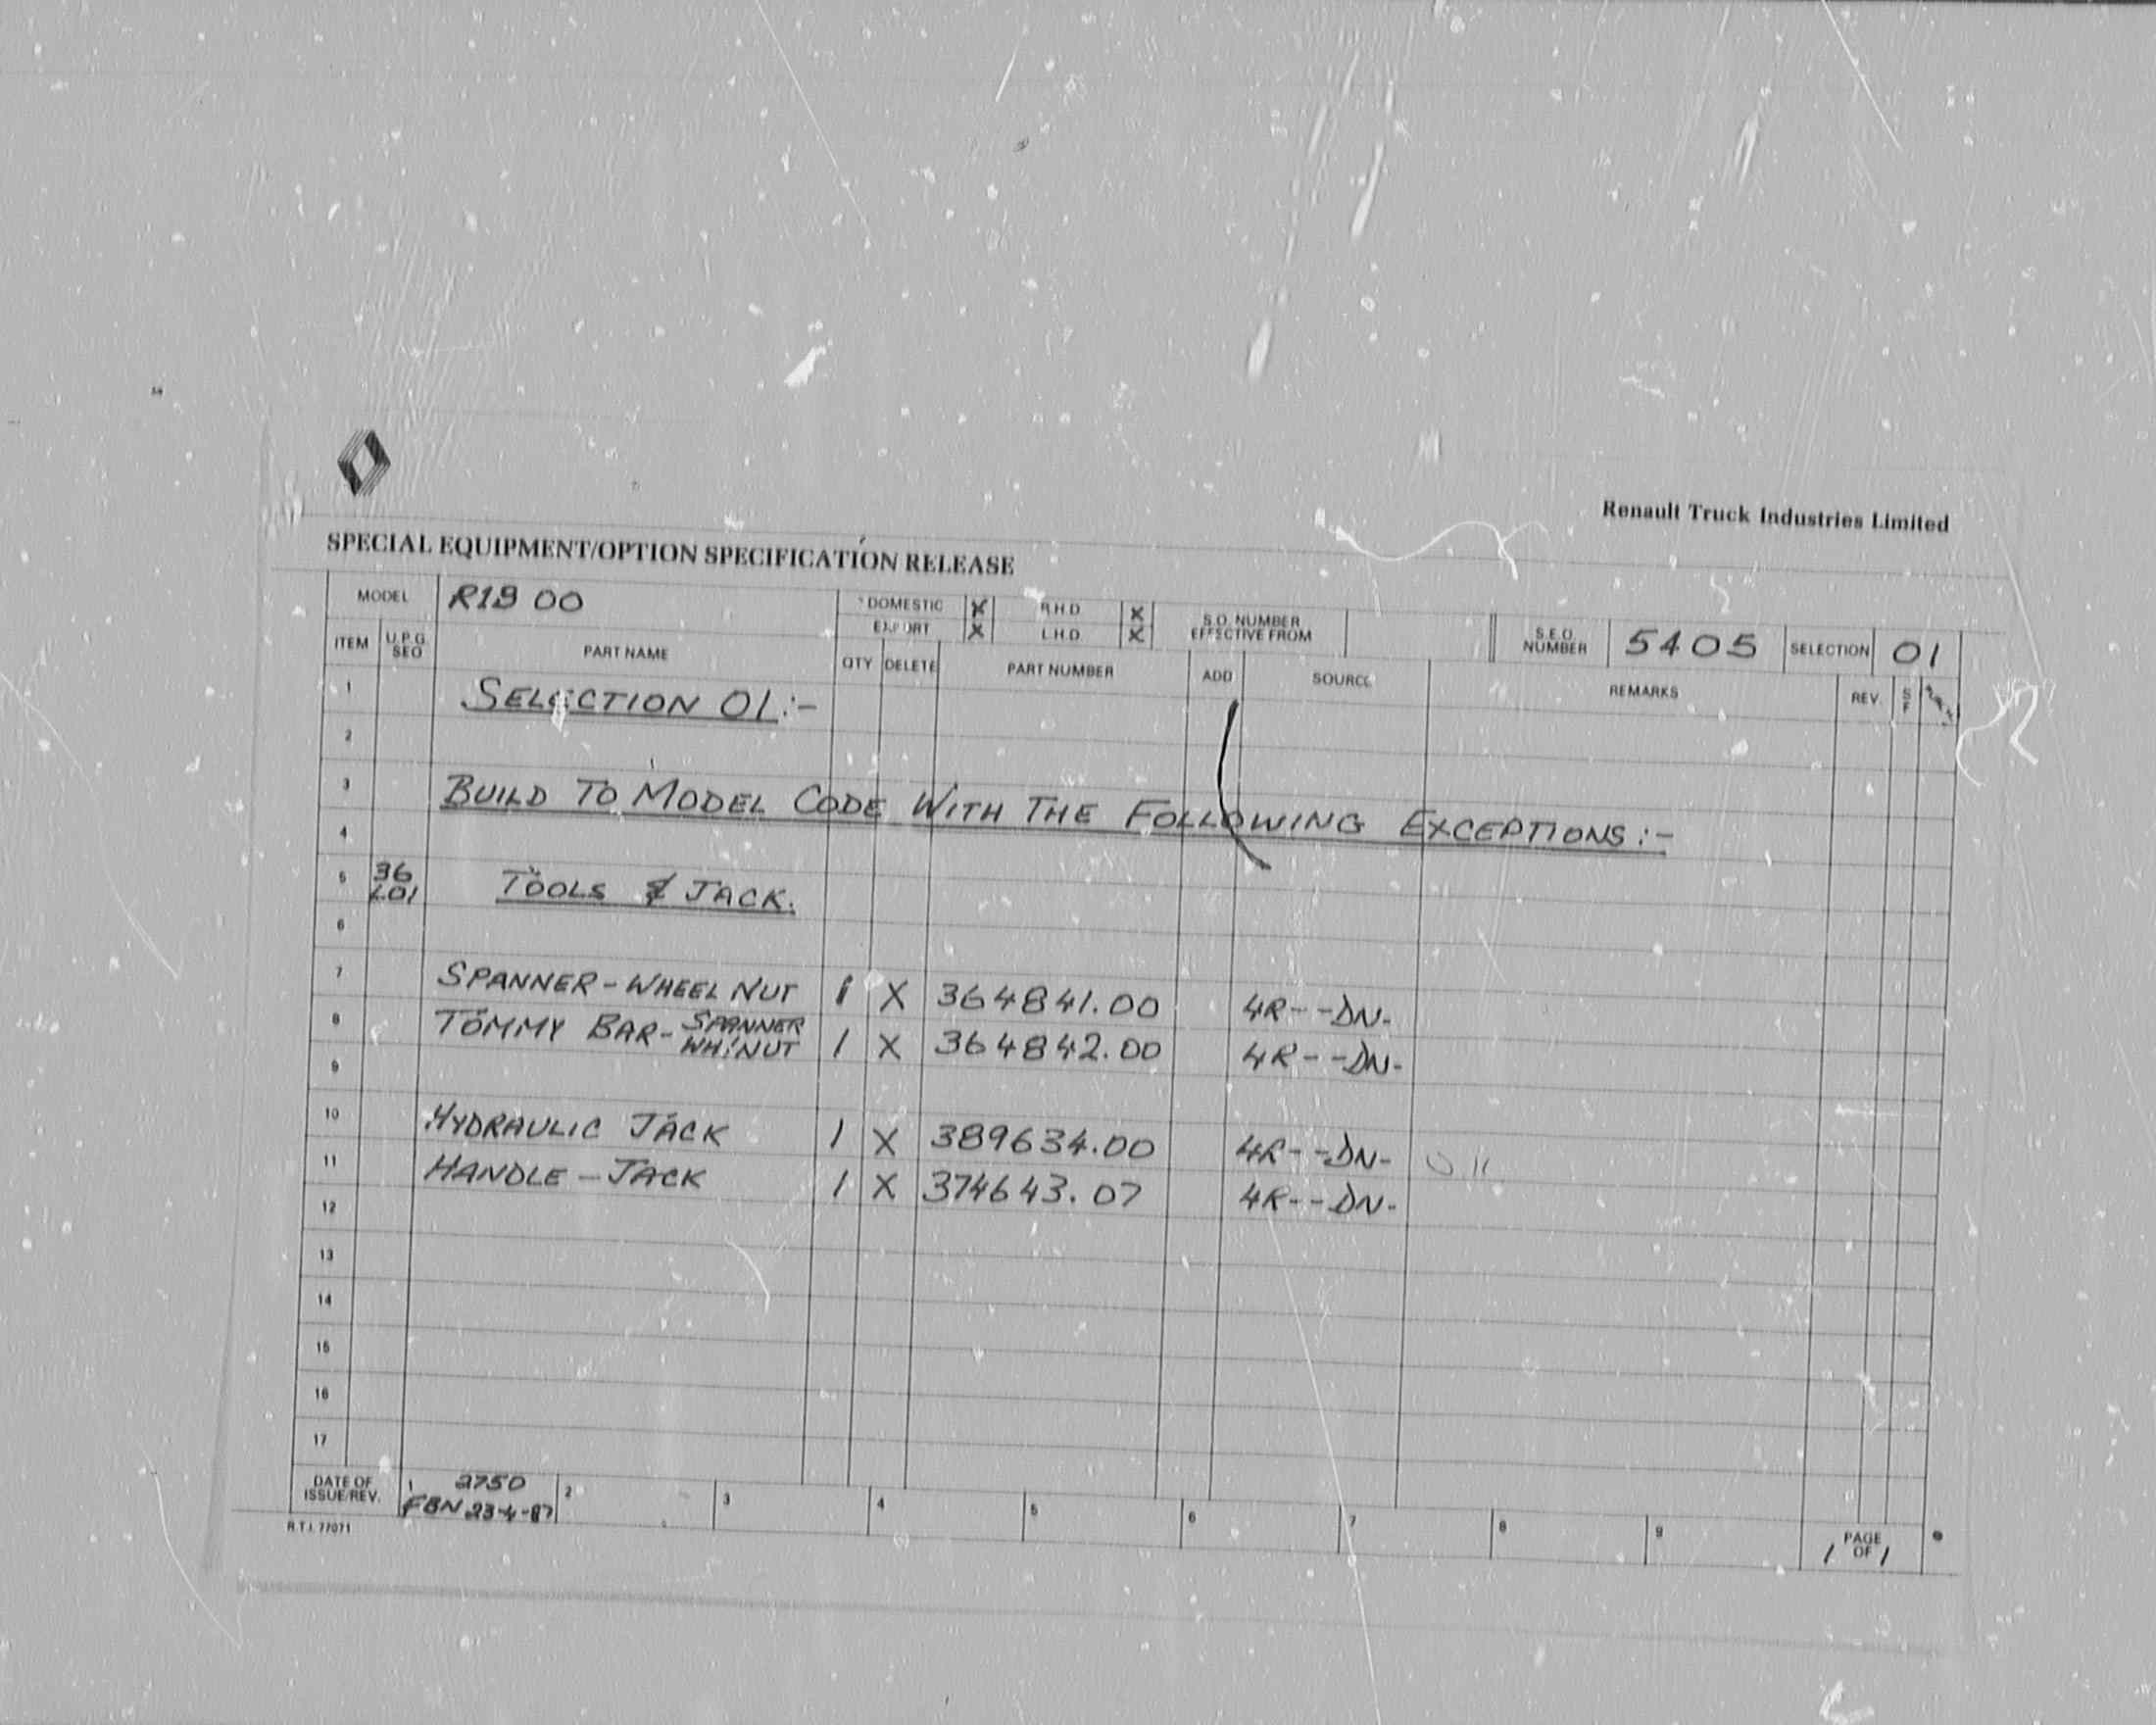 Renault Truck Industries Limited
SPECIAL EQUIPMENT/OPTION SPECIFICATION RELEASE
MODEL R1B 00 DOMESTIC X R.H.D X S.O. NUMBER EFFECTIVE FROM S.E.O. NUMBER 5405 SELECTION 01
EXPORT X L.H.D X
ITEM U.P.G. SEQ PART NAME QTY DELETE PART NUMBER ADD SOURCE REMARKS REV. S F
1 SELECTION 01:-
2
3 BUILD TO MODEL CODE WITH THE FOLLOWING EXCEPTIONS:-
4
5 36 L01 TOOLS & JACK.
6
7 SPANNER-WHEEL NUT 1 X 364841.00 4R--DN-
8 TOMMY BAR-SPANNER WH:NUT 1 X 364842.00 4R--DN-
9
10 HYDRAULIC JACK 1 X 389634.00 4R--DN-
11 HANDLE-JACK 1 X 374643.07 4R--DN-
12
13
14
15
16
17
DATE OF ISSUE/REV. 1 2750 2 3 4 5 6 7 8 9 PAGE 1 OF 1
FBN 23-4-87
R.T.I. 77071